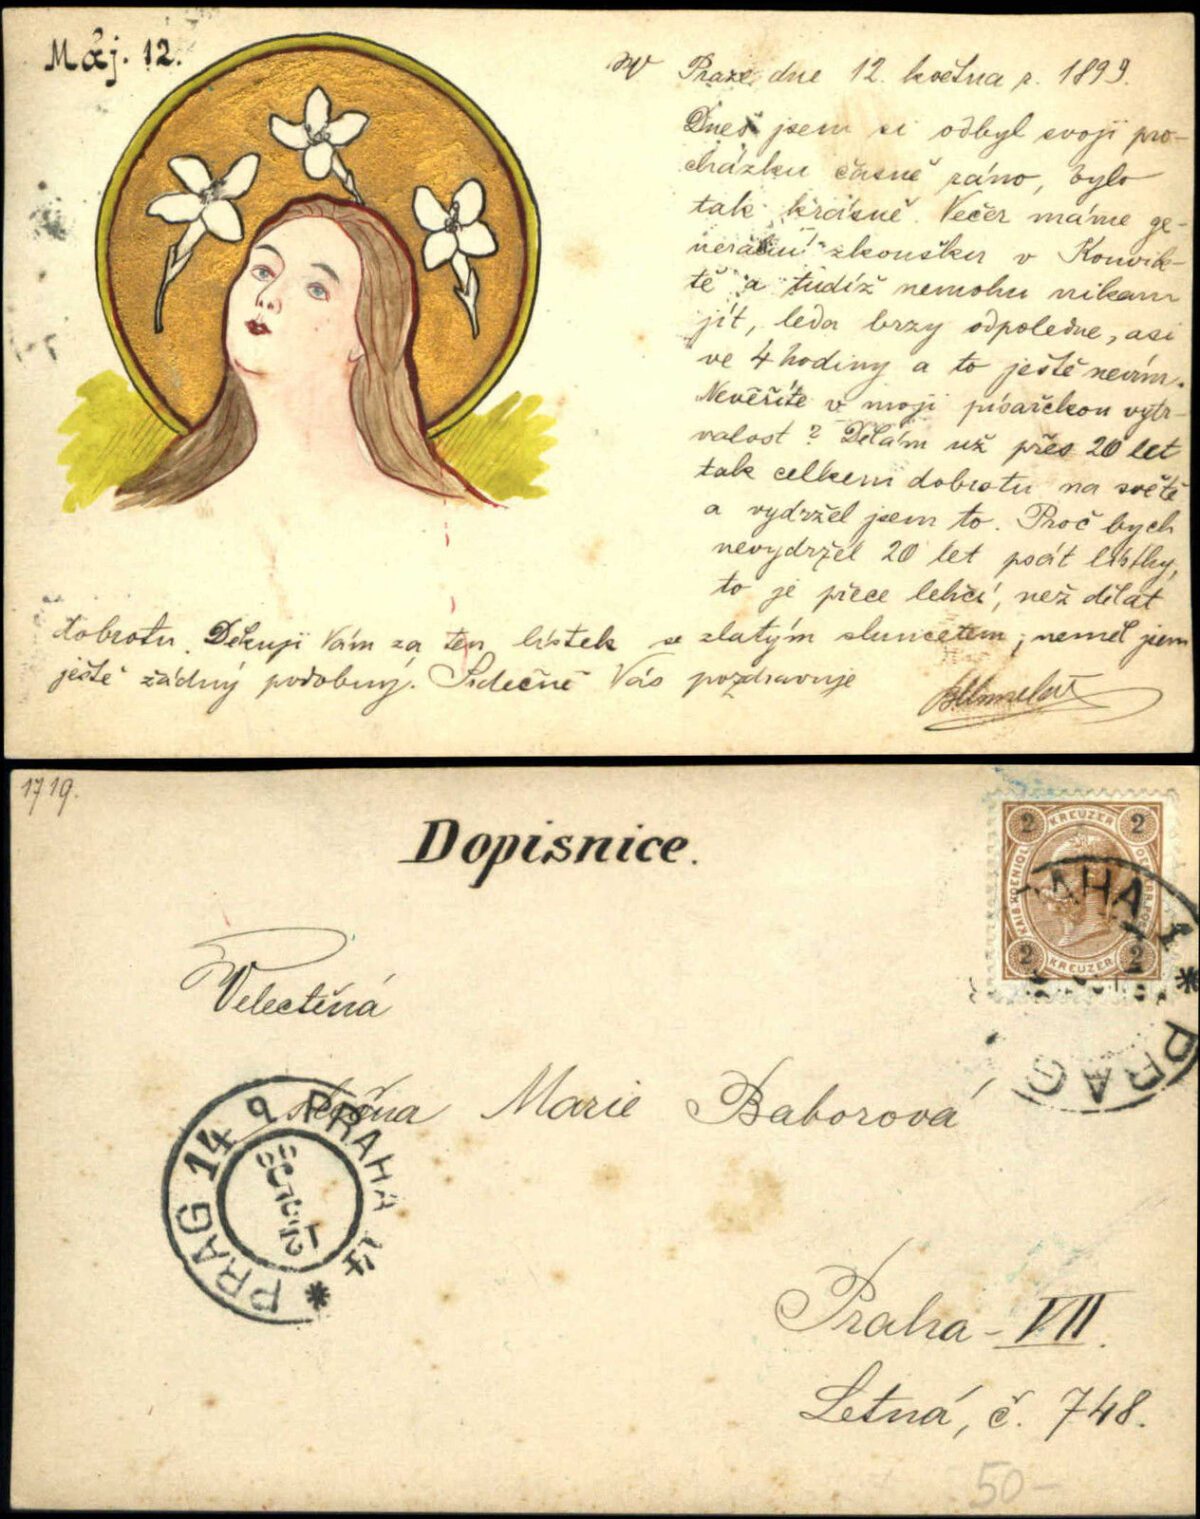 Máj. 12.
W Praze, dne 12. května r. 1899.
Dnes jsem si odbyl svoji pro-
cházku časně ráno, bylo
tak krásně. Večer máme ge-
nerální zkoušku v Konvik-
tě a tudíž nemohu nikam
jít, leda brzy odpoledne, asi
ve 4 hodiny a to ještě nevím.
Nevěříte v moji písařskou vytr-
valost? Dělám už přes 20 let
tak celkem dobrotu na světě
a vydržel jsem to. Proč bych
nevydržel 20 let psát lístky,
to je přece lehčí, než dělat
dobrotu. Děkuji Vám za ten lístek se zlatým sluncetem, neměl jsem
ještě žádný podobný. Srdečně Vás pozdravuje
1719.
Dopisnice.
2 KREUZER 2
KAIS. KOENIGL. OESTERR. POST
2 KREUZER 2
PRAHA 1 * PRAG
Velectěná
slečna Marie Baborová
PRAG 14 9 PRAHA 14 *
Praha - VII.
Letná, č. 748.
50-